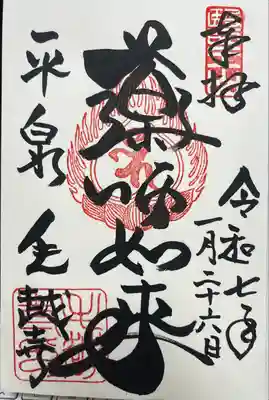 奉拝
令和七年
一月二十六日
薬師如来
平泉 毛越寺